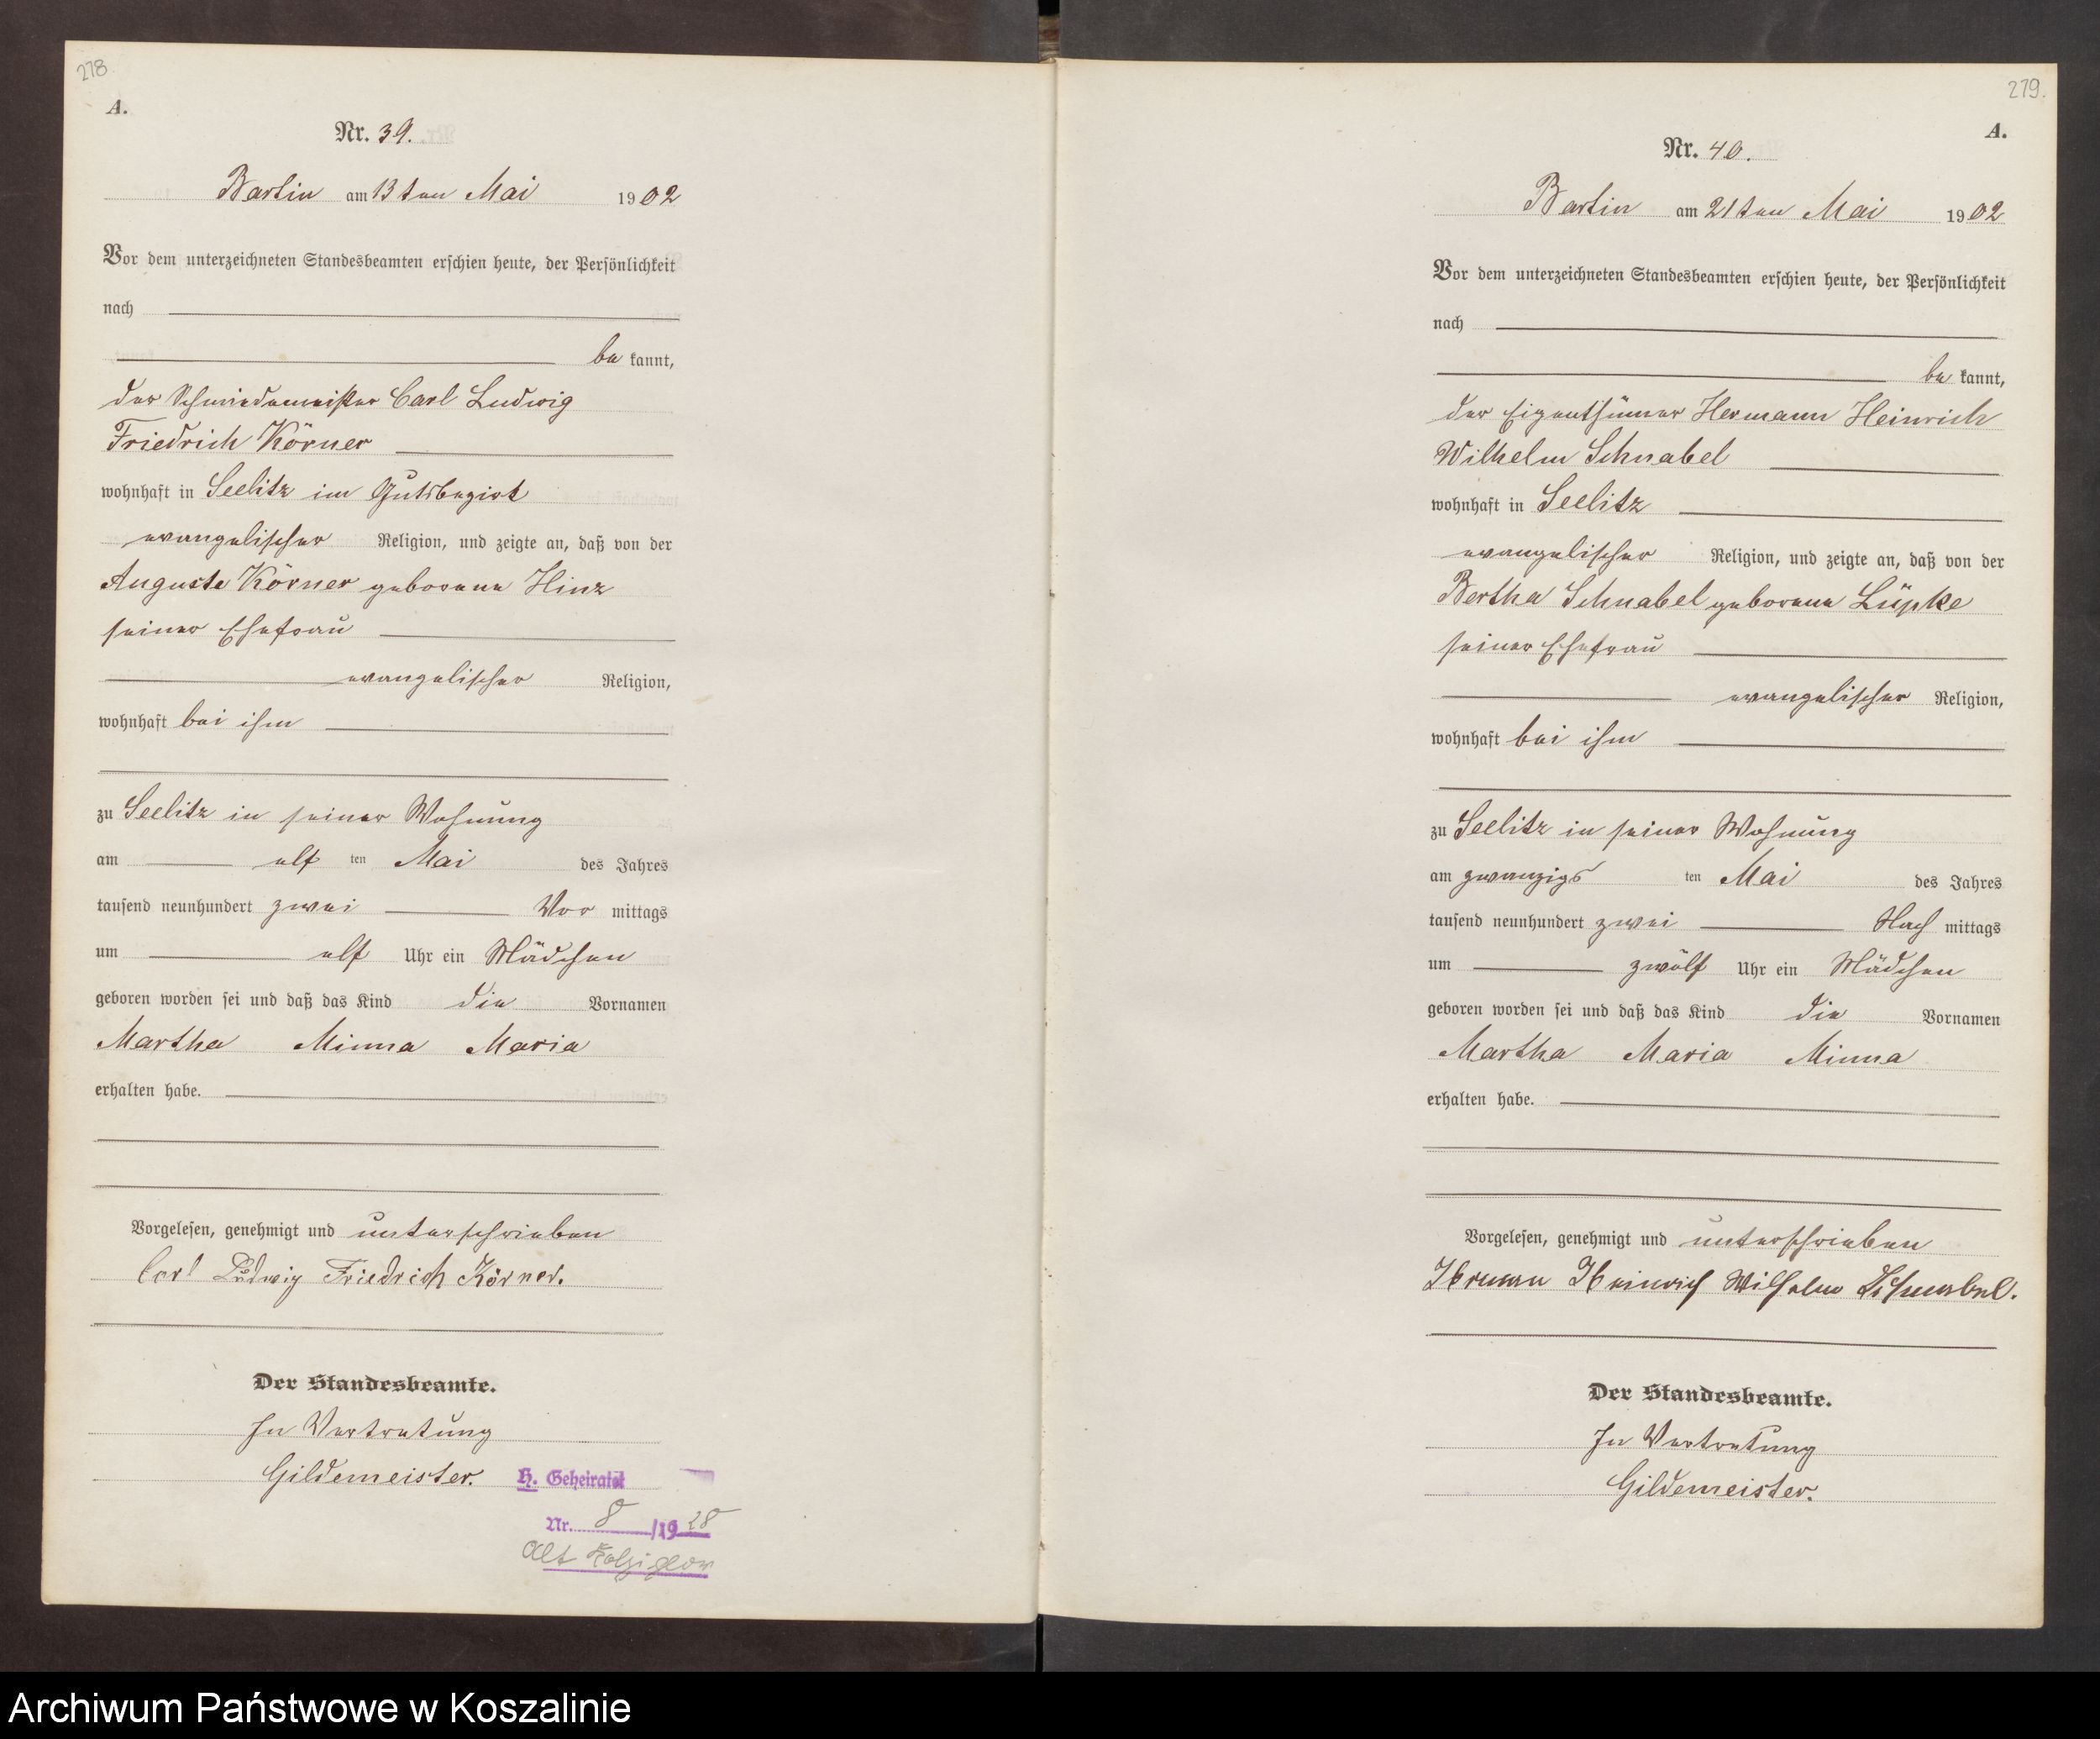 278.
A.
Nr. 39.
Bartin am 13ten Mai 1902
Vor dem unterzeichneten Standesbeamten erschien heute, der Persönlichkeit
nach
be kannt,
der Schmiedemeister Carl Ludwig
Friedrich Körner
wohnhaft in Seelitz im Gutsbezirk
evangelischer Religion, und zeigte an, daß von der
Auguste Körner geborene Hinz
seiner Ehefrau
evangelischer Religion,
wohnhaft bei ihm
zu Seelitz in seiner Wohnung
am elf ten Mai des Jahres
tausend neunhundert zwei Vor mittags
um elf Uhr ein Mädchen
geboren worden sei und daß das Kind die Vornamen
Martha Minna Maria
erhalten habe.
Vorgelesen, genehmigt und unterschrieben
Carl Ludwig Friedrich Körner.
Der Standesbeamte.
In Vertretung
Gildemeister.
H. Geheiratet
Nr. 8/1928
Alt Kolziglow
279.
A.
Nr. 40.
Bartin am 21ten Mai 1902
Vor dem unterzeichneten Standesbeamten erschien heute, der Persönlichkeit
nach
be kannt,
der Eigenthümer Hermann Heinrich
Wilhelm Schnabel
wohnhaft in Seelitz
evangelischer Religion, und zeigte an, daß von der
Bertha Schnabel geborene Lüpke
seiner Ehefrau
evangelischer Religion,
wohnhaft bei ihm
zu Seelitz in seiner Wohnung
am zwanzigs ten Mai des Jahres
tausend neunhundert zwei Nach mittags
um zwölf Uhr ein Mädchen
geboren worden sei und daß das Kind die Vornamen
Martha Maria Minna
erhalten habe.
Vorgelesen, genehmigt und unterschrieben
Herman Heinrich Wilhelm Schnabel.
Der Standesbeamte.
In Vertretung
Gildemeister.
Archiwum Państwowe w Koszalinie